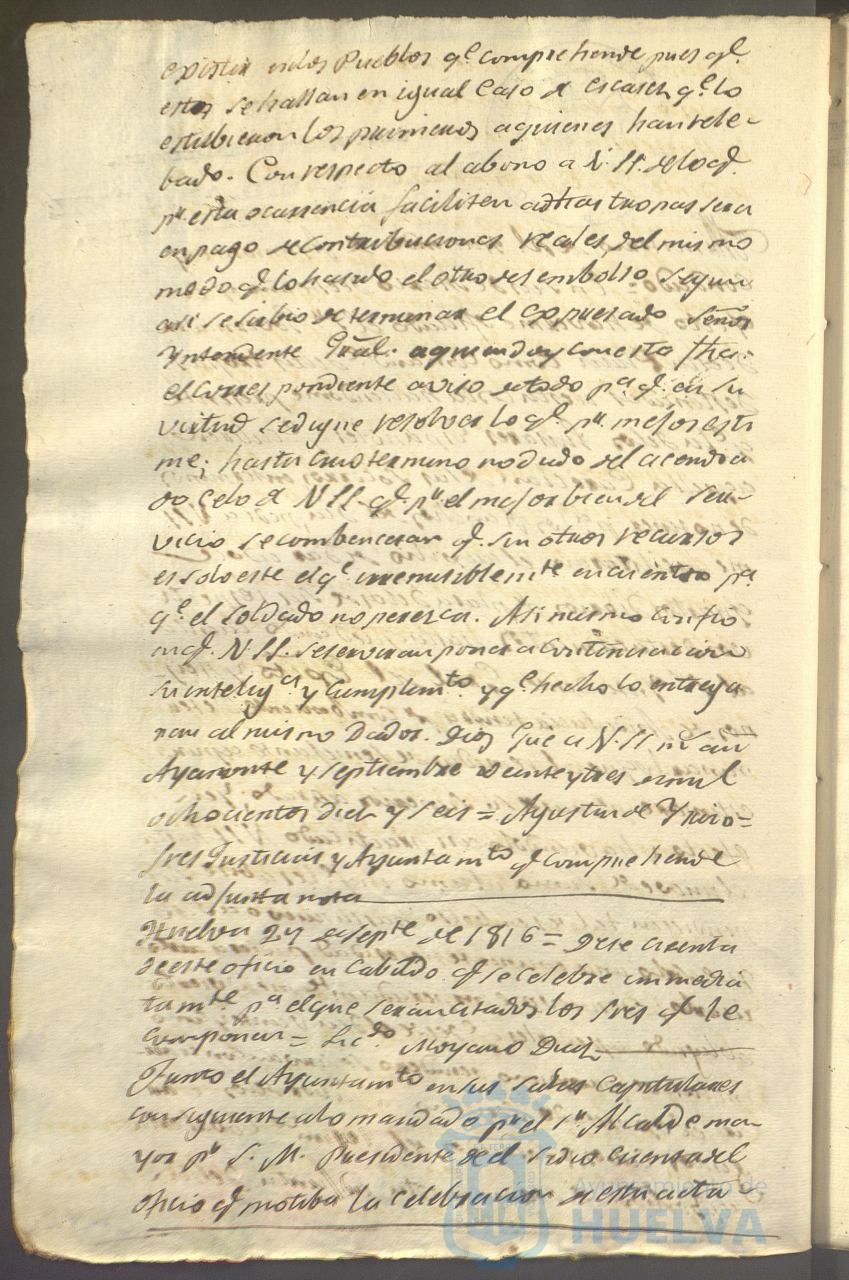 existir en los Pueblos qe. comprehende pues qe.
estos se hallan en igual caso de escases qe. lo
estubieron los primeros a quienes han rele-
bado. Con respecto al abono a V. SS. de lo qe.
pr. esta ocurrencia faciliten a dhas tropas sera
en pago de contribuciones reales, del mismo
modo qe. lo ha sido el otro desembolso segun
asi se sirbio determinar el expresado Señor
Yntendente Gral. a quien doy con esta fha.
el correspondiente aviso de todo pa. qe. en su
virtud se digne resolver lo qe. pr. mejor esti
me; hasta cuio termino no dudo del acendra
do celo de V SS. qe. pr. el mejor bien del Ser-
vicio se combenceran qe. sin otros recursos
es solo este el qe. irremisiblemte encuentro pa.
qe. el soldado no peresca. Asi mismo confio
en qe. V. SS. se serviran poner a continuacion
su inteliga. y cumplimto. y qe. hecho lo entrega
ran al mismo Dador. Dios gue a V. SS. ms. as.
Ayamonte y Septiembre veinte y tres de mil
ochocientos diez y seis = Agustin de
Sres Justicias y Ayuntamto. qe. comprehende
la adjunta nota
Huelva 24 de Septe. de 1816 = Dese cuenta
de este oficio en Cabildo qe. se celebre immedia
tamte. pa. el que seran citados los Sres qe. le
componen = Licdo. Moyano Diez
Junto el Ayuntamto. en sus Salas Capitulares
consiguiente a lo mandado pr. el Sr. Alcalde ma-
yor pr. S. M. Presidente de el se dio cuenta del
oficio qe. motiba la celebracion de esta acta
Ayuntamiento de
HUELVA